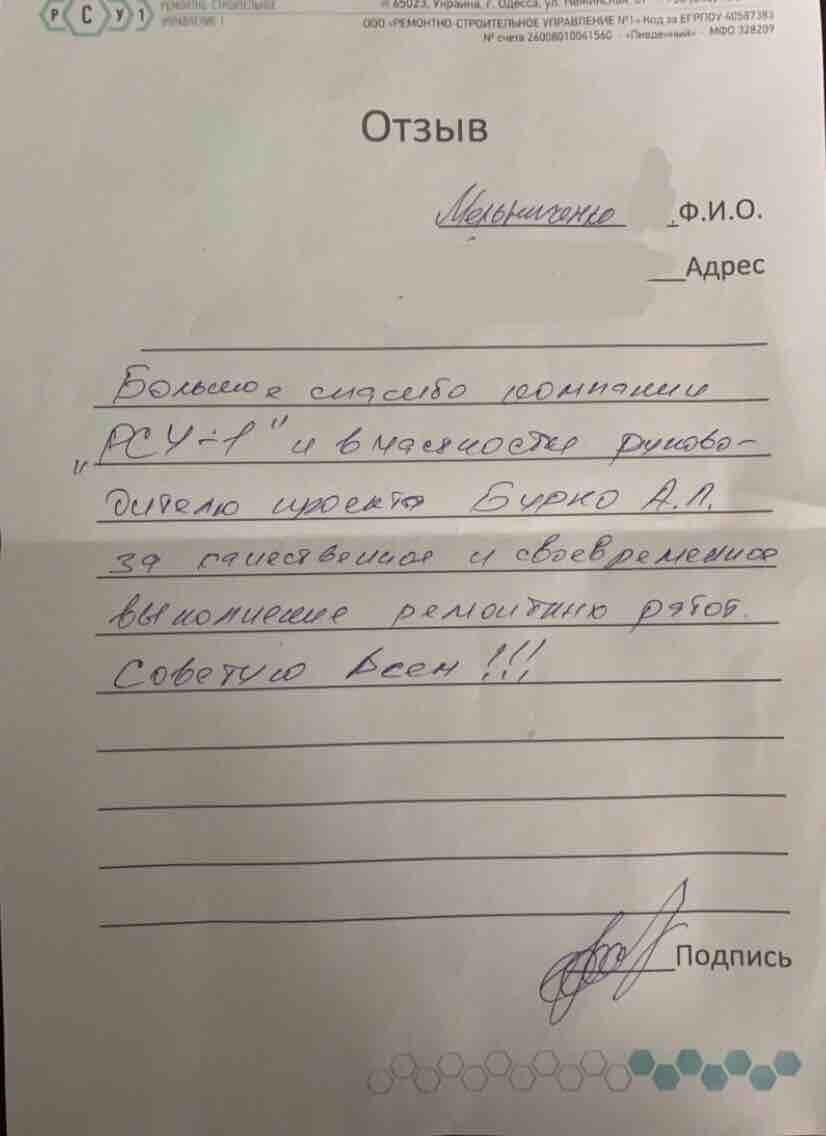 Р С У 1
РЕМОНТНО-СТРОИТЕЛЬНОЕ
УПРАВЛЕНИЕ 1
65023, Украина, г. Одесса, ул.
ООО «РЕМОНТНО-СТРОИТЕЛЬНОЕ УПРАВЛЕНИЕ №1» Код за ЕГРПОУ 40587383
№ счета 26008010041560 · «Пивденный» · МФО 328209
Отзыв
Мельниченко Ф.И.О.
Адрес
Большое спасибо компании
"РСУ-1" и в частности руково-
дителю проекта Бурко А.Л.
за качественное и своевременное
выполнение ремонтных работ.
Советую всем!!!
Подпись